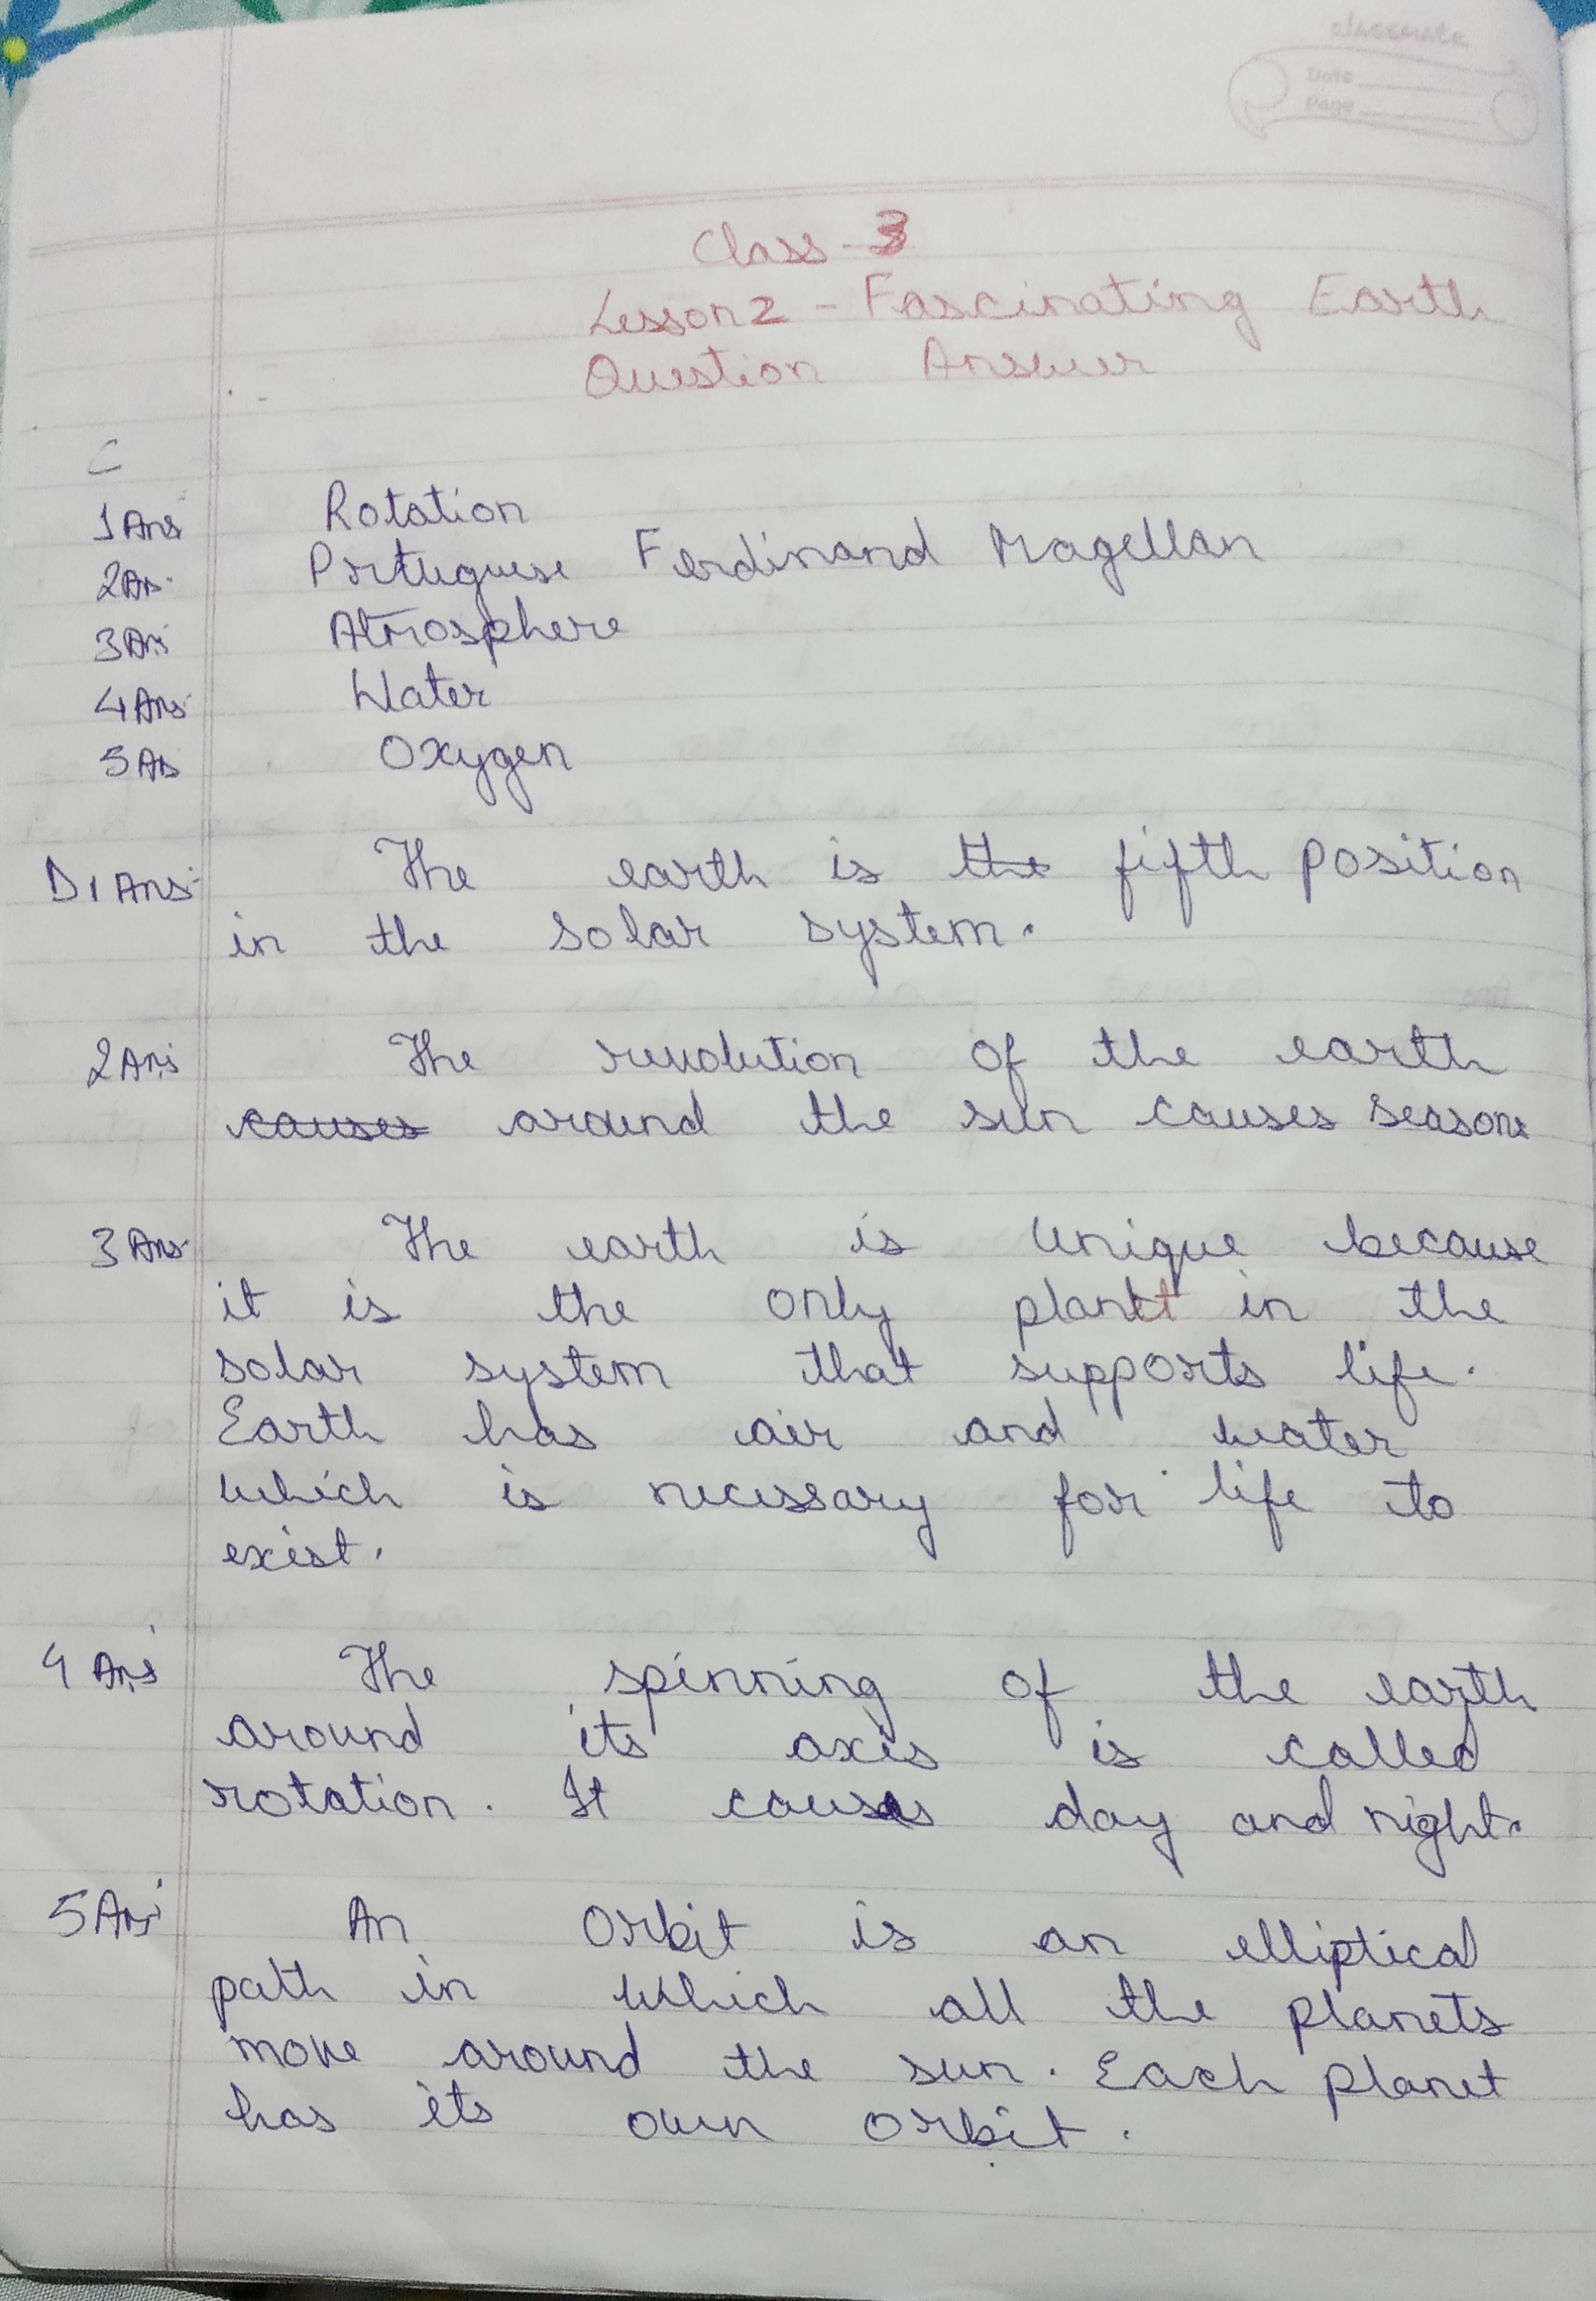 classmate
Date
Page
Class - 3
Lesson 2 - Fascinating Earth
Question Answer
C
1 Ans Rotation
2 As Portuguese Ferdinand Magellan
3 Ans Atmosphere
4 Ans Water
5 As Oxygen
D1 Ans The earth is the fifth position
in the solar system.
2 Ans The revolution of the earth
causes around the sun causes seasons
3 Ans The earth is unique because
it is the only planet in the
solar system that supports life.
Earth has air and water
which is necessary for life to
exist.
4 Ans The spinning of the earth
around its axis is called
rotation. It causes day and night.
5 Ans An Orbit is an elliptical
path in which all the planets
move around the sun. Each planet
has its own orbit.